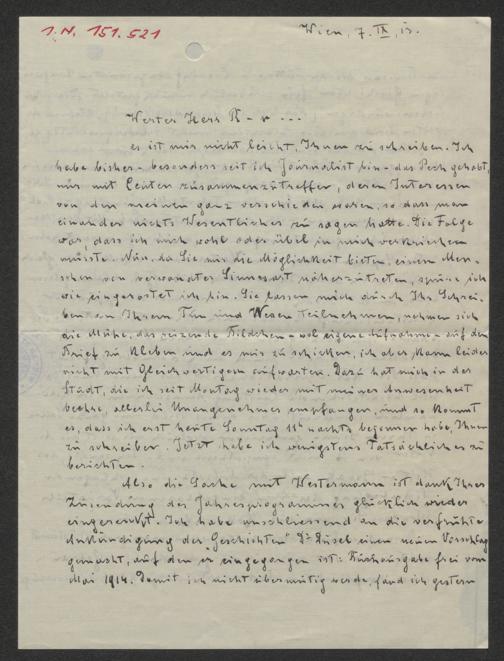 I.N. 151.521
Wien, 7. IX. 13.
Werter Herr R - r ...
es ist mir nicht leicht, Ihnen zu schreiben. Ich
habe bisher - besonders seit ich Journalist bin - das Pech gehabt,
nur mit Leuten zusammenzutreffen, deren Interessen
von den meinen ganz verschieden waren, so dass man
einander nichts Wesentliches zu sagen hatte. Die Folge
war, dass ich mich wohl oder übel in mich verkriechen
musste. Nun, da Sie mir die Möglichkeit bieten, einem Men-
schen von verwandter Sinnesart näherzutreten, spüre ich
wie eingerostet ich bin. Sie lassen mich durch Ihr Schrei-
ben an Ihrem Tun und Wesen teilnehmen, nehmen sich
die Mühe, das reizende Bildchen - wol eigene Aufnahme - auf den
Brief zu kleben und es mir zu schicken, ich aber kann leider
nicht mit Gleichwertigem aufwarten. Dazu hat mich in der
Stadt, die ich seit Montag wieder mit meiner Anwesenheit
beehre, allerlei Unangenehmes empfangen, und so kommt
es, dass ich erst heute Sonntag 11h nachts begonnen habe, Ihnen
zu schreiben. Jetzt habe ich wenigstens Tatsächliches zu
berichten.
Also die Sache mit Westermann ist dank Ihrer
Zusendung des Jahresprogrammes glücklich wieder
eingerenkt. Ich habe anschliessend an die verfrühte
Ankündigung der „Geschichten" Dr. Düsel einen neuen Vorschlag
gemacht, auf den er eingegangen ist: Buchausgabe frei vom
Mai 1914. Damit ich nicht übermütig werde, fand ich gestern